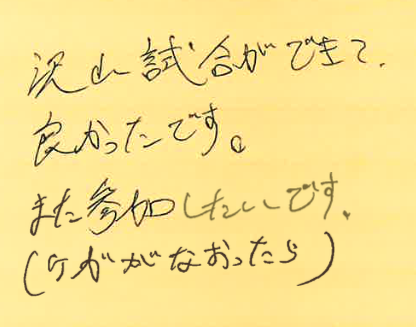 沢山試合ができて、
良かったです。
また参加したいです。
(ケガがなおったら)